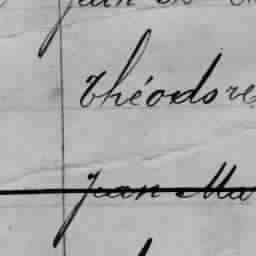 Théodore
Jean Ma